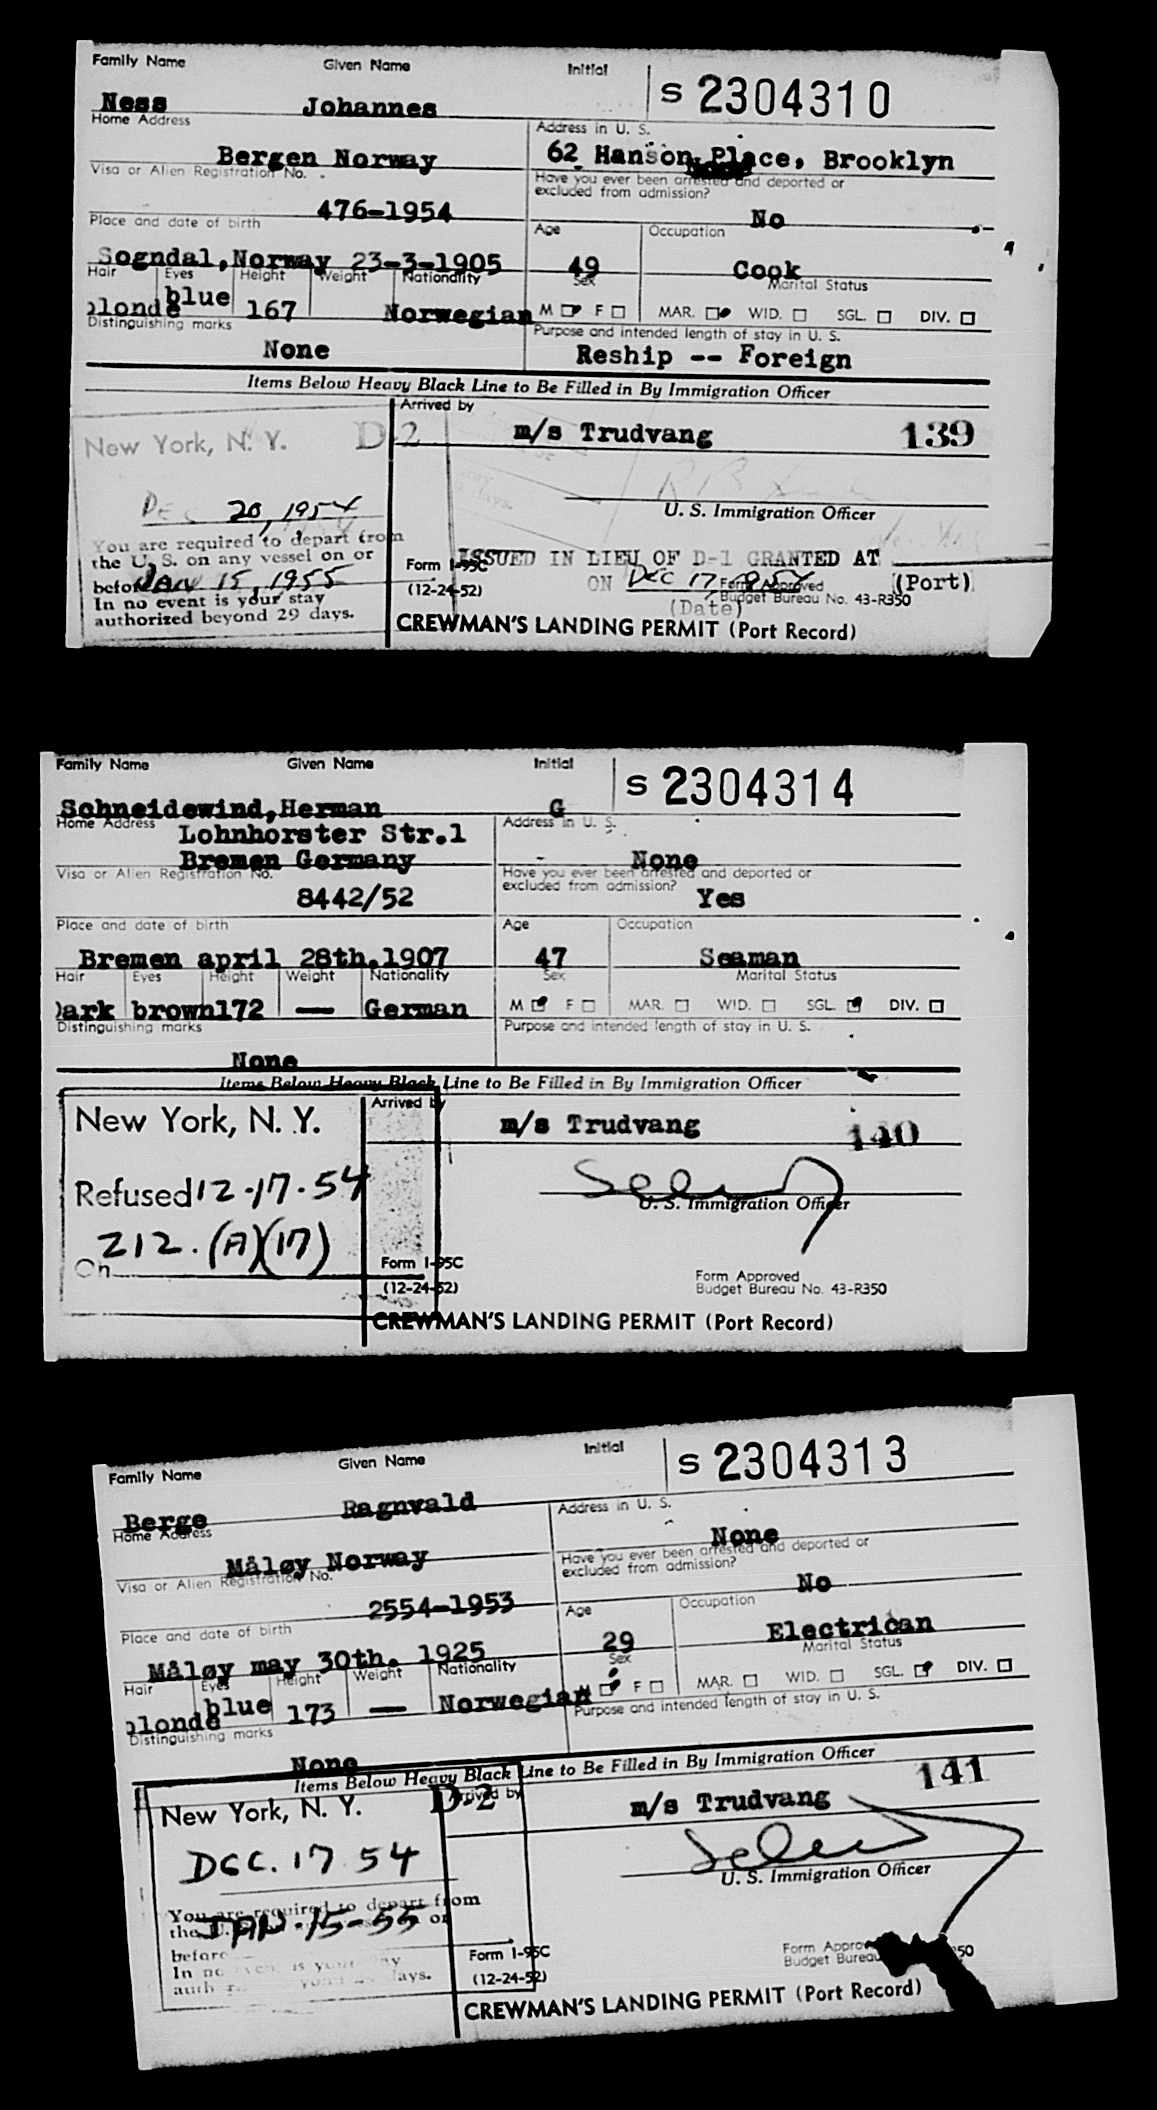 Family Name Given Name Initial
S 2304310
Ness Johannes
Home Address Address in U. S.
Bergen Norway 62 Hanson Place, Brooklyn
Visa or Alien Registration No. Have you ever been arrested and deported or
excluded from admission?
476-1954 No
Place and date of birth Age Occupation
Sogndal, Norway 23-3-1905 49 Cook
Hair Eyes Height Weight Nationality Sex Marital Status
blonde blue 167 Norwegian M F MAR. WID. SGL. DIV.
Distinguishing marks Purpose and intended length of stay in U. S.
None Reship -- Foreign
Items Below Heavy Black Line to Be Filled in By Immigration Officer
Arrived by
New York, N. Y. D 2 m/s Trudvang 139
U. S. Immigration Officer
DEC 20, 1954
You are required to depart from
the U. S. on any vessel on or
before JAN 15, 1955
In no event is your stay
authorized beyond 29 days.
Form I-95C
(12-24-52)
ISSUED IN LIEU OF D-1 GRANTED AT
ON DEC 17 1954 (Port)
(Date)
Form Approved
Budget Bureau No. 43-R350
CREWMAN'S LANDING PERMIT (Port Record)
Family Name Given Name Initial
S 2304314
Schneidewind, Herman G
Home Address Address in U. S.
Lohnhorster Str.1
Bremen Germany None
Visa or Alien Registration No. Have you ever been arrested and deported or
excluded from admission?
8442/52 Yes
Place and date of birth Age Occupation
Bremen april 28th. 1907 47 Seaman
Hair Eyes Height Weight Nationality Sex Marital Status
Dark brown 172 — German M F MAR. WID. SGL. DIV.
Distinguishing marks Purpose and intended length of stay in U. S.
None
Items Below Heavy Black Line to Be Filled in By Immigration Officer
Arrived by
New York, N. Y. m/s Trudvang 140
Refused 12-17-54
U. S. Immigration Officer
212. (A)(17)
On
Form I-95C
(12-24-52)
Form Approved
Budget Bureau No. 43-R350
CREWMAN'S LANDING PERMIT (Port Record)
Family Name Given Name Initial
S 2304313
Berge Ragnvald
Home Address Address in U. S.
Måløy Norway None
Visa or Alien Registration No. Have you ever been arrested and deported or
excluded from admission?
2554-1953 No
Place and date of birth Age Occupation
Måløy may 30th. 1925 29 Electrican
Hair Eyes Height Weight Nationality Sex Marital Status
blonde blue 173 — Norwegian M F MAR. WID. SGL. DIV.
Distinguishing marks Purpose and intended length of stay in U. S.
None
Items Below Heavy Black Line to Be Filled in By Immigration Officer
Arrived by
New York, N. Y. D-2 m/s Trudvang 141
DEC. 17 54
U. S. Immigration Officer
You are required to depart from
the U. JAN-15-55 or
before
In no event is your stay
days.
Form I-95C
(12-24-52)
Form Approved
Budget Bureau
CREWMAN'S LANDING PERMIT (Port Record)